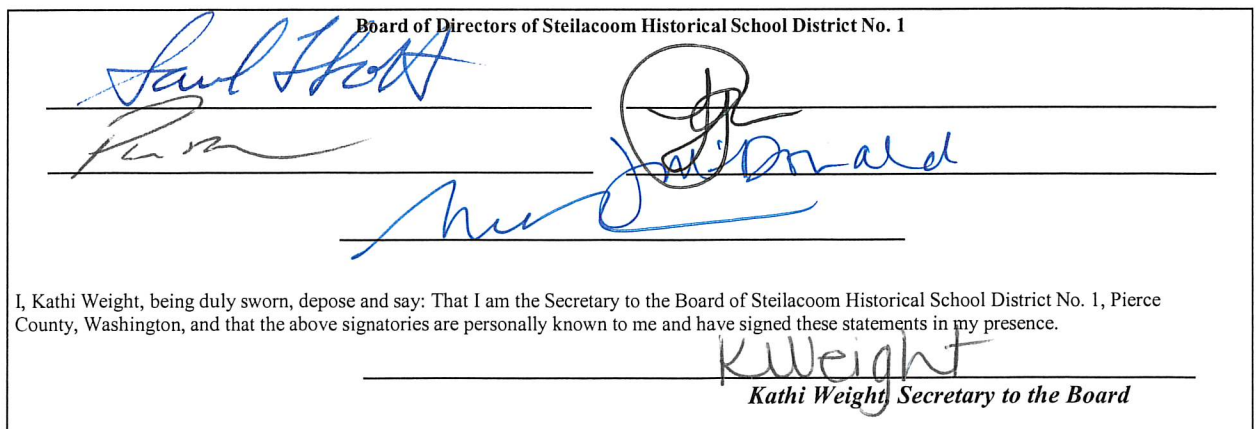 Board of Directors of Steilacoom Historical School District No. 1
McDonald
I, Kathi Weight, being duly sworn, depose and say: That I am the Secretary to the Board of Steilacoom Historical School District No. 1, Pierce
County, Washington, and that the above signatories are personally known to me and have signed these statements in my presence.
KWeight
Kathi Weight, Secretary to the Board